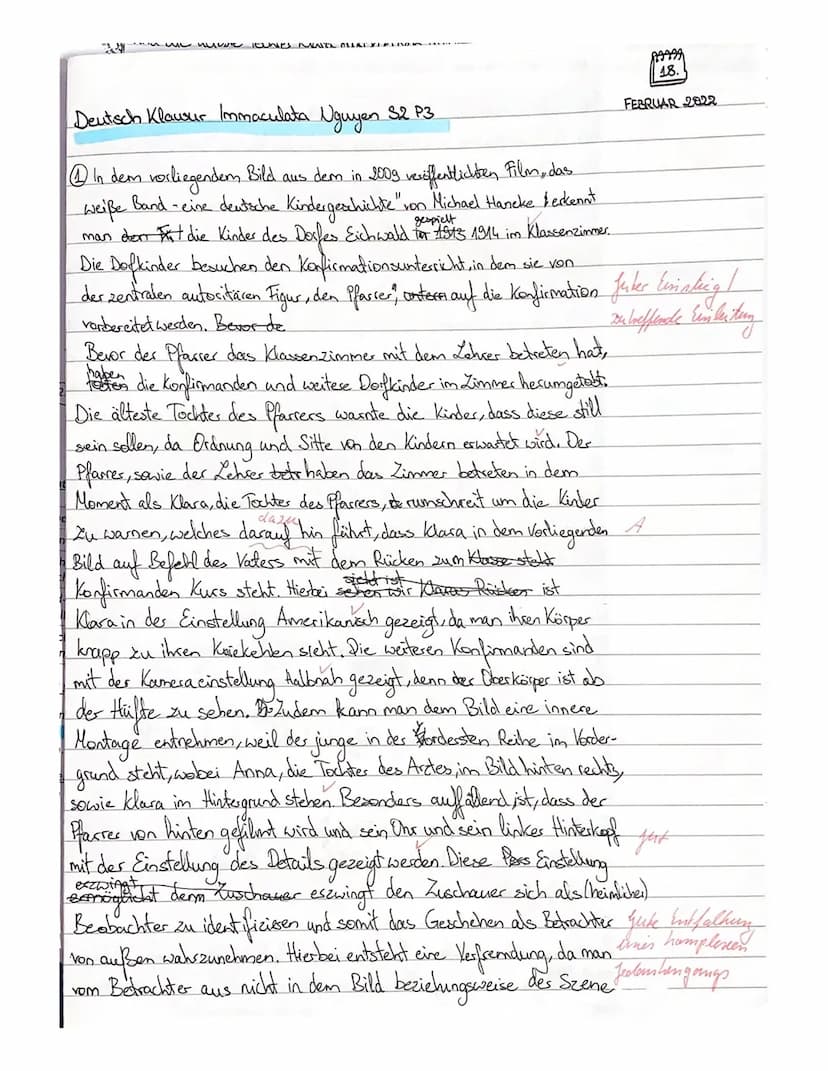 18.
FEBRUAR 2022
Deutsch Klausur Immaculata Nguyen S2 P3
① In dem vorliegendem Bild aus dem in 2009 veröffentlichten Film „das
weiße Band - eine deutsche Kindergeschichte" von Michael Hancke erkennt
man die Kinder des Dorfes Eichwald gespielt 1914 im Klassenzimmer.
Die Dofkinder besuchen den Konfirmationsunterricht, in dem sie von
der zentralen autoritären Figur, den Pfarrer, auf die Konfirmation
vorbereitet werden. Bevor de
guter Einstieg!
zutreffende Einleitung
Bevor der Pfarrer das Klassenzimmer mit dem Lehrer betreten hat,
haben die Konfirmanden und weitere Dorfkinder im Zimmer herumgetobt.
Die älteste Tochter des Pfarrers warnte die Kinder, dass diese still
sein sollen, da Ordnung und Sitte von den Kindern erwartet wird. Der
Pfarrer, sowie der Lehrer haben das Zimmer betreten in dem
Moment als Klara, die Tochter des Pfarrers, rumschreit um die Kinder
zu warnen, welches darauf hin führt, dass Klara in dem Vorliegenden
dazu
A
Bild auf Befehl des Vaters mit dem Rücken zum Klasse steht
Konfirmanden Kurs steht. Hierbei sehen wir Klaras Rücken ist
sieht ist
Klara in der Einstellung Amerikanisch gezeigt, da man ihren Körper
knapp zu ihren Kniekehlen sieht. Die weiteren Konfirmanden sind
mit der Kameraeinstellung Halbnah gezeigt, denn der Oberkörper ist ab
der Hüfte zu sehen. Zudem kann man dem Bild eine innere
Montage entnehmen, weil der junge in der Vordersten Reihe im Vorder-
grund steht, wobei Anna, die Tochter des Arztes, im Bild hinten rechts,
sowie Klara im Hintergrund stehen. Besonders auffallend ist, dass der
Pfarrer von hinten gefilmt wird und sein Ohr und sein linker Hinterkopf
gut
mit der Einstellung des Details gezeigt werden. Diese Einstellung
erzwingt
ermöglicht denn Zuschauer erzwingt den Zuschauer sich als (heimlicher)
Beobachter zu identifizieren und somit das Geschehen als Betrachter
von außen wahrzunehmen. Hierbei entsteht eine Verfremdung, da man
vom Betrachter aus nicht in dem Bild beziehungsweise der Szene
gute Entfaltung
eines komplexen